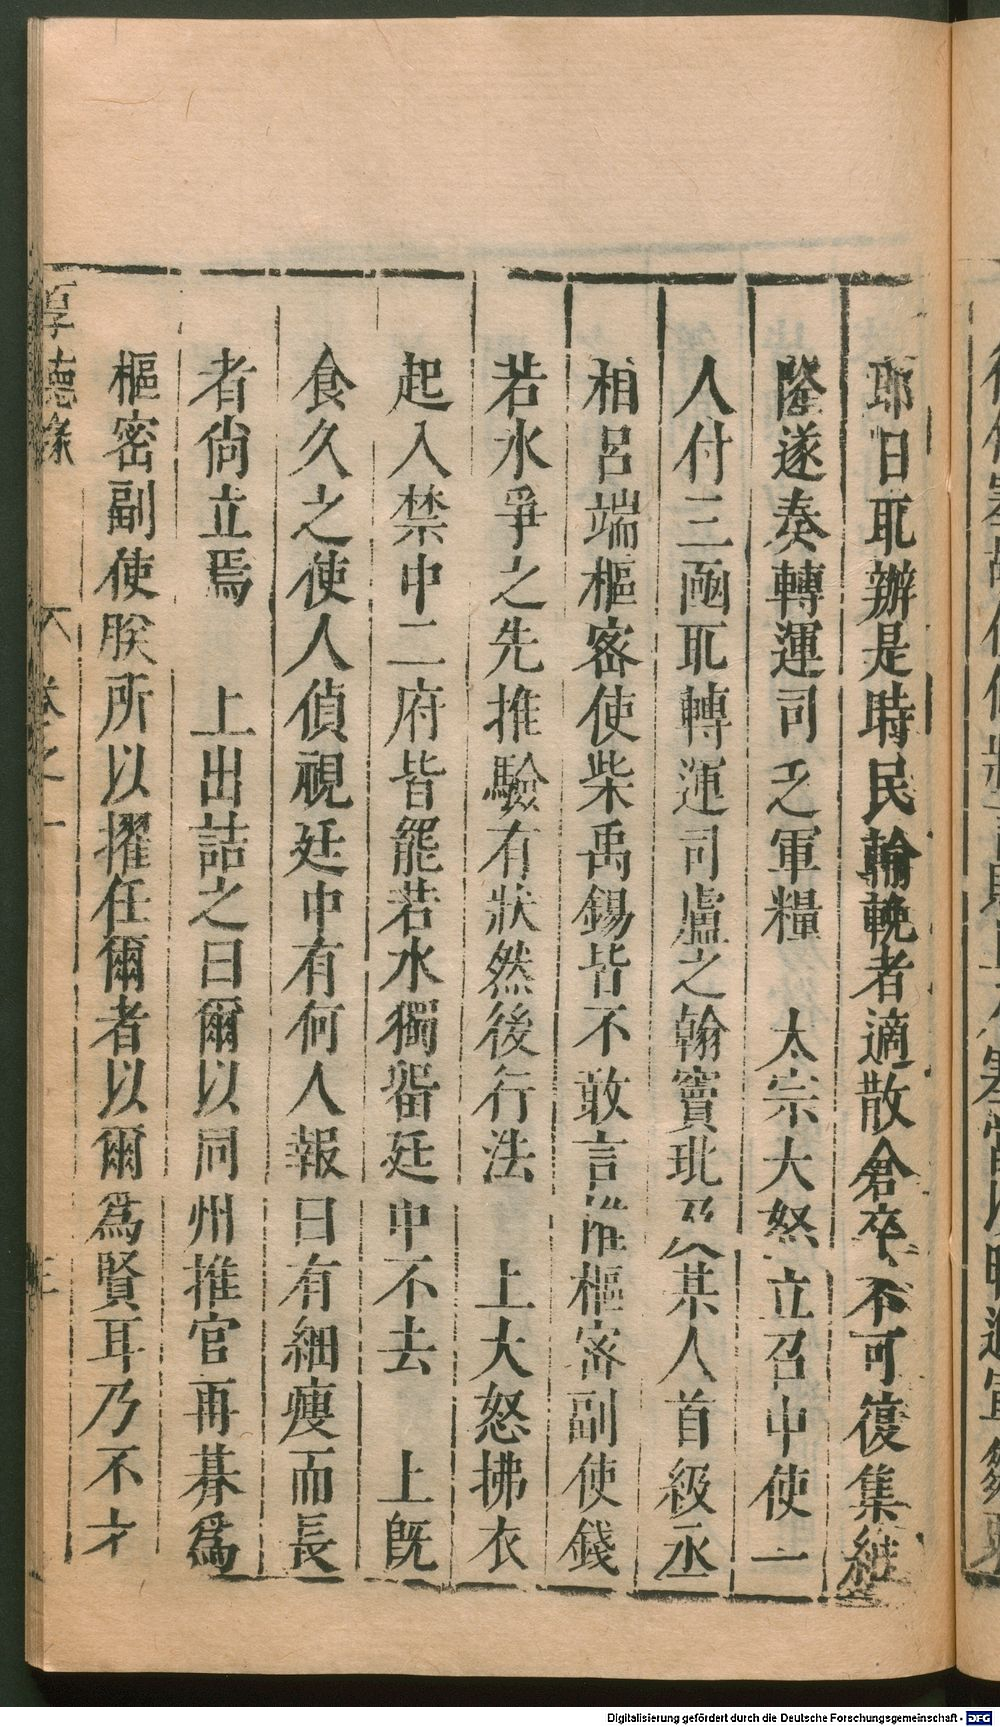 耶曰耴辦是時民輸輓者適散倉卒不可復集継
隆遂奏轉運司乏軍糧　太宗大怒立召中使一
人付三凾耴轉運司盧之翰竇玭及某人首級丞
相呂端樞宻使柴禹錫皆不敢言惟樞宻副使錢
若水爭之先推驗有狀然後行法　上大怒拂衣
起入禁中二府皆罷若水獨畱廷中不去　上旣
食久之使人偵視廷中有何人報曰有細瘦而長
者尙立焉　上出詰之曰爾以同州推官再朞爲
樞密副使朕所以擢任爾者以爾爲賢耳乃不才
厚德錄　卷之一　三
Digitalisierung gefördert durch die Deutsche Forschungsgemeinschaft - DFG